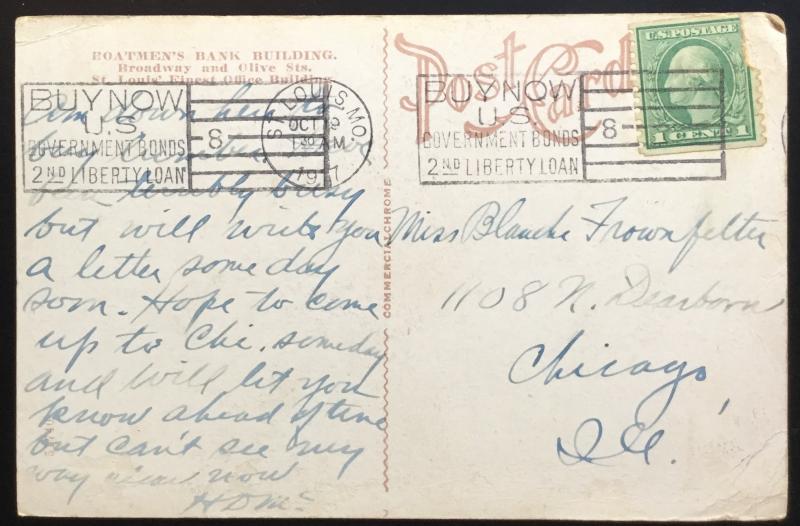 BOATMEN'S BANK BUILDING.
Broadway and Olive Sts.
St. Louis' Finest Office Building
Post Card
U.S. POSTAGE
1 CENT 1
BUY NOW
U.S.
GOVERNMENT BONDS
2ND LIBERTY LOAN
8
ST. LOUIS, MO.
OCT
1 30 AM
1917
BUY NOW
U.S.
GOVERNMENT BONDS
2ND LIBERTY LOAN
8
Am down here to
buy lumber
been terribly busy
but will write you
a letter some day
soon. Hope to come
up to Chi. someday
and will let you
know ahead of time
but can't see my
way now
COMMERCIALCHROME
Miss Blanche Frownfelter
1108 N. Dearborn
Chicago,
Ill.